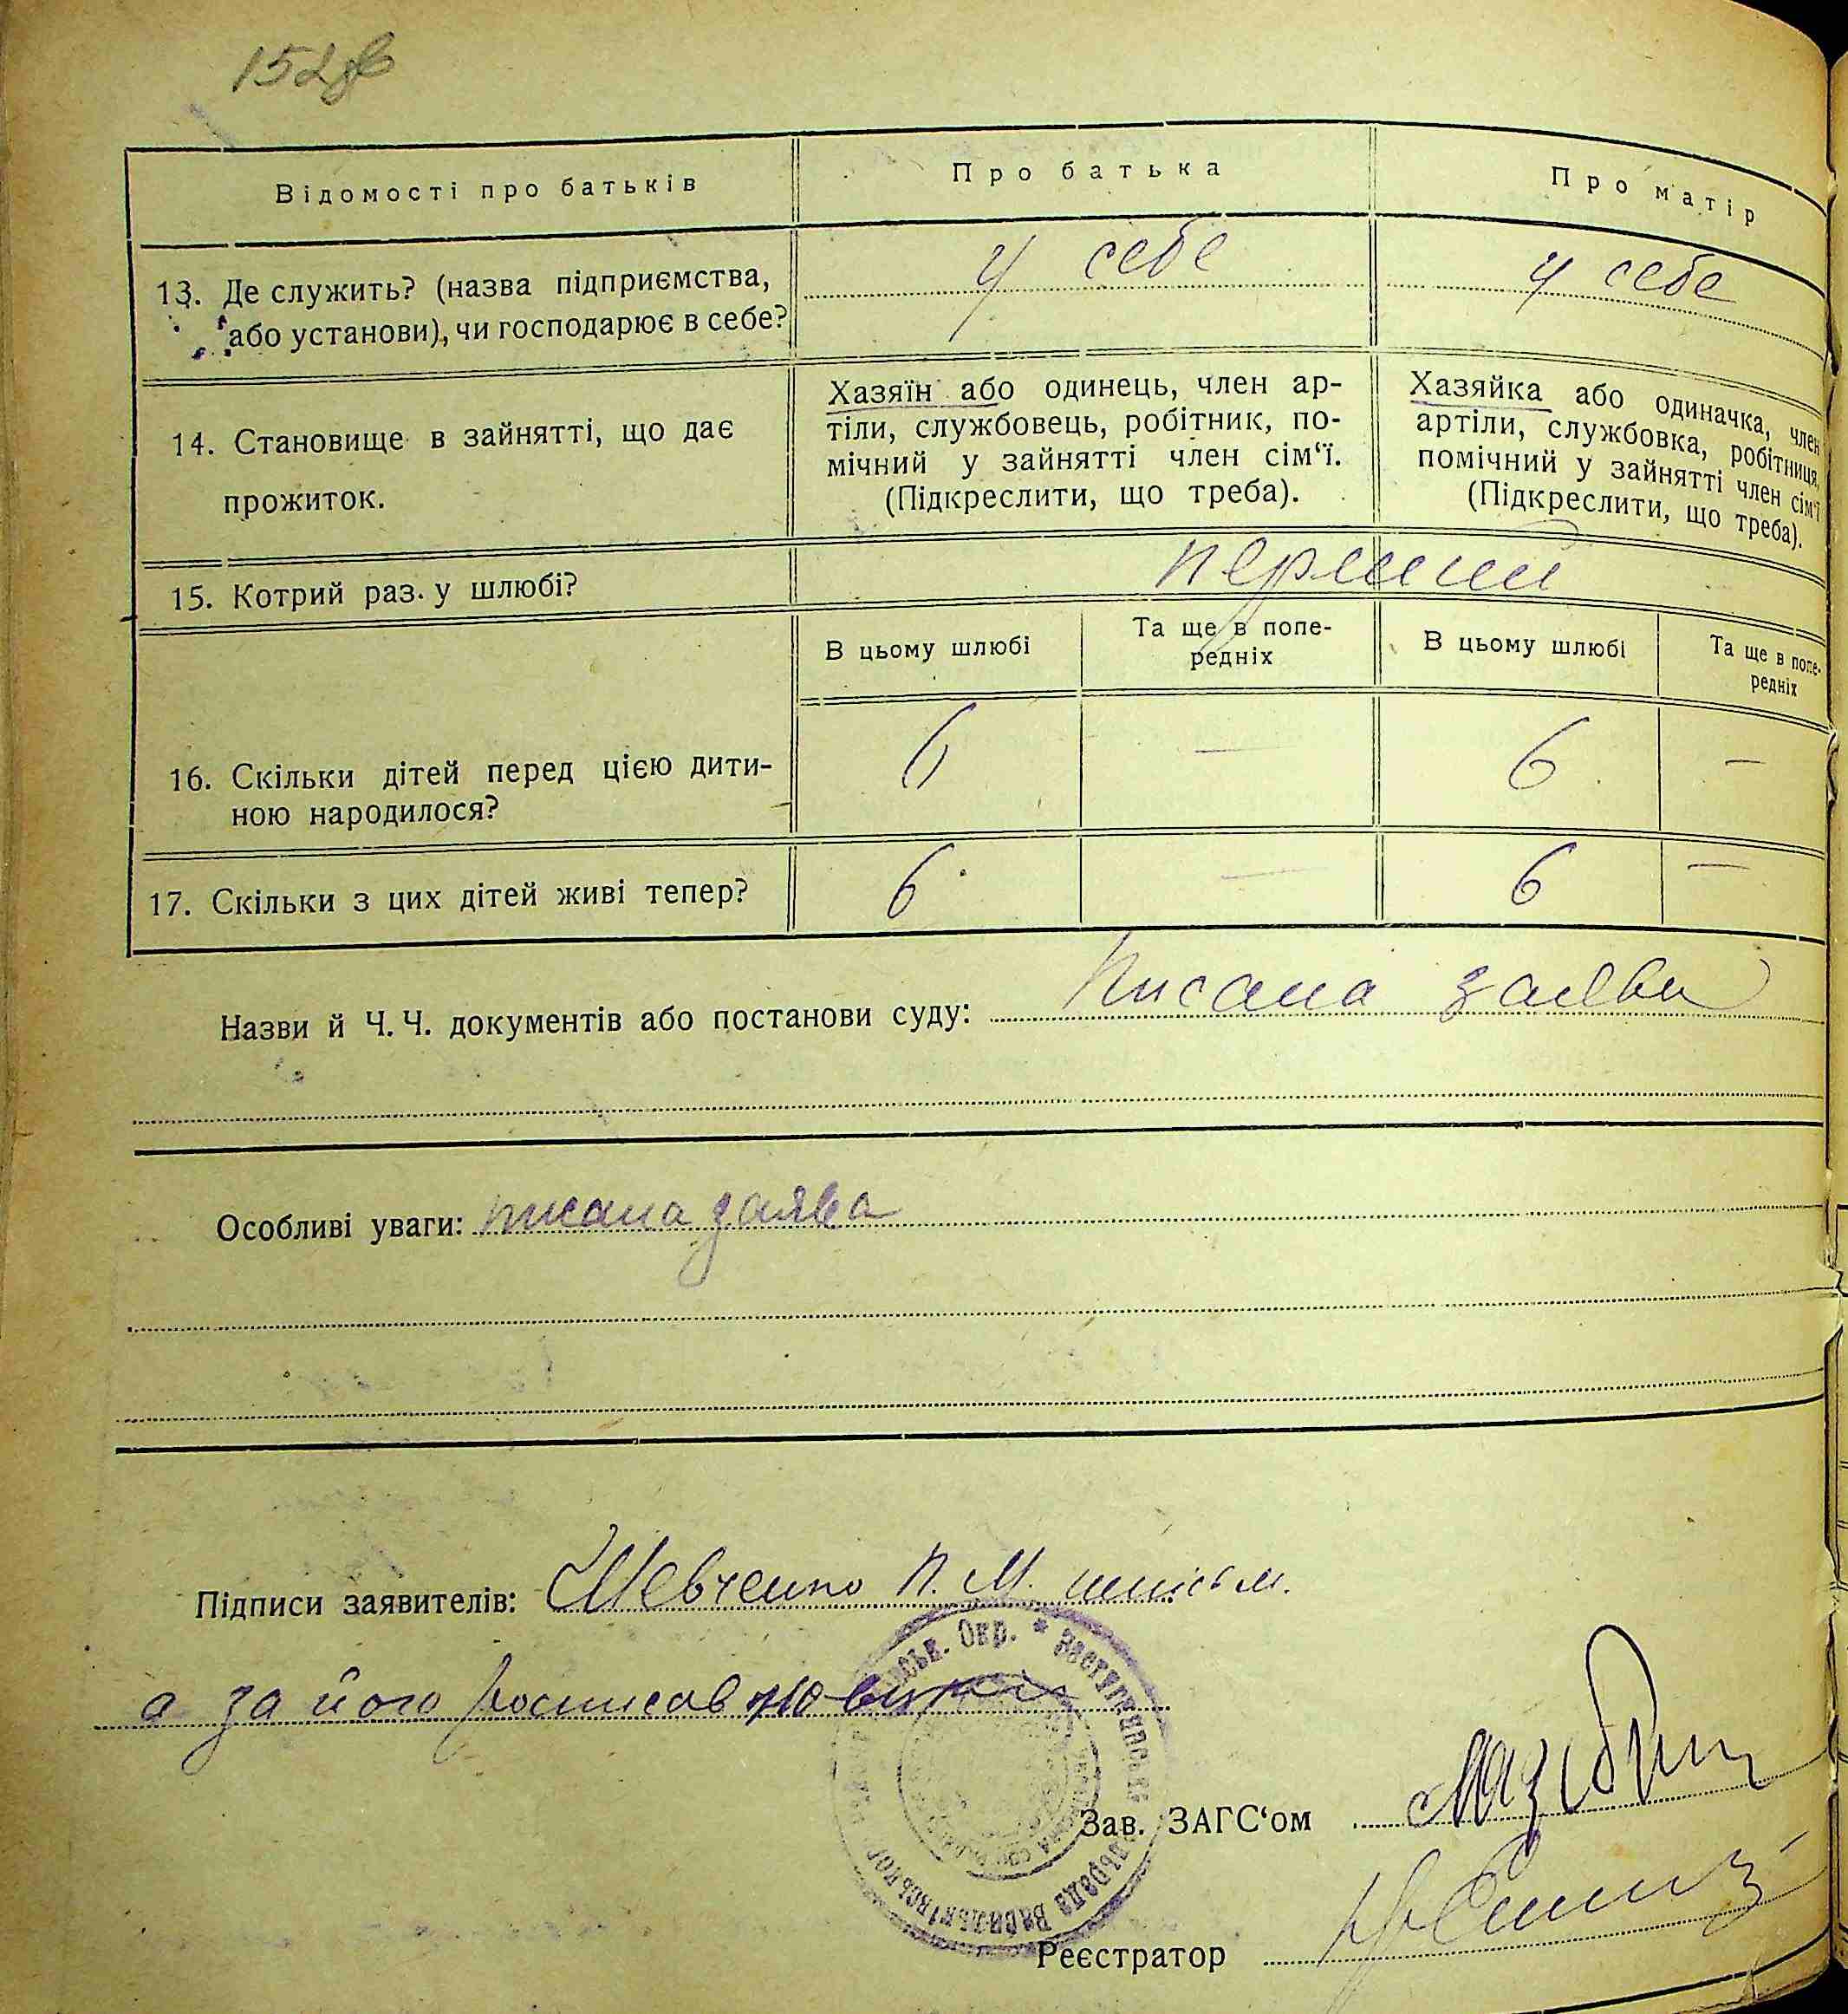 152
Відомості про батьків
Про батька
Про матір
13. Де служить? (назва підприємства,
або установи), чи господарює в себе?
у себе
у себе
14. Становище в зайнятті, що дає
прожиток.
Хазяїн або одинець, член ар-
тіли, службовець, робітник, по-
мічний у зайнятті член сім‘ї.
(Підкреслити, що треба).
Хазяйка або одиначка, член
артіли, службовка, робітниця,
помічний у зайнятті член сім‘ї
(Підкреслити, що треба).
15. Котрий раз у шлюбі?
перший
В цьому шлюбі
Та ще в попе-
редніх
В цьому шлюбі
Та ще в попе-
редніх
16. Скільки дітей перед цією дити-
ною народилося?
6 — 6 —
17. Скільки з цих дітей живі тепер?
6 — 6 —
Назви й Ч. Ч. документів або постанови суду: писана заява
Особливі уваги: писана заява
Підписи заявителів: Шевченко П. М.
а за його росписав
Окр. * Застугнянська сільрада Васильківського
Зав. ЗАГС‘ом
Реєстратор